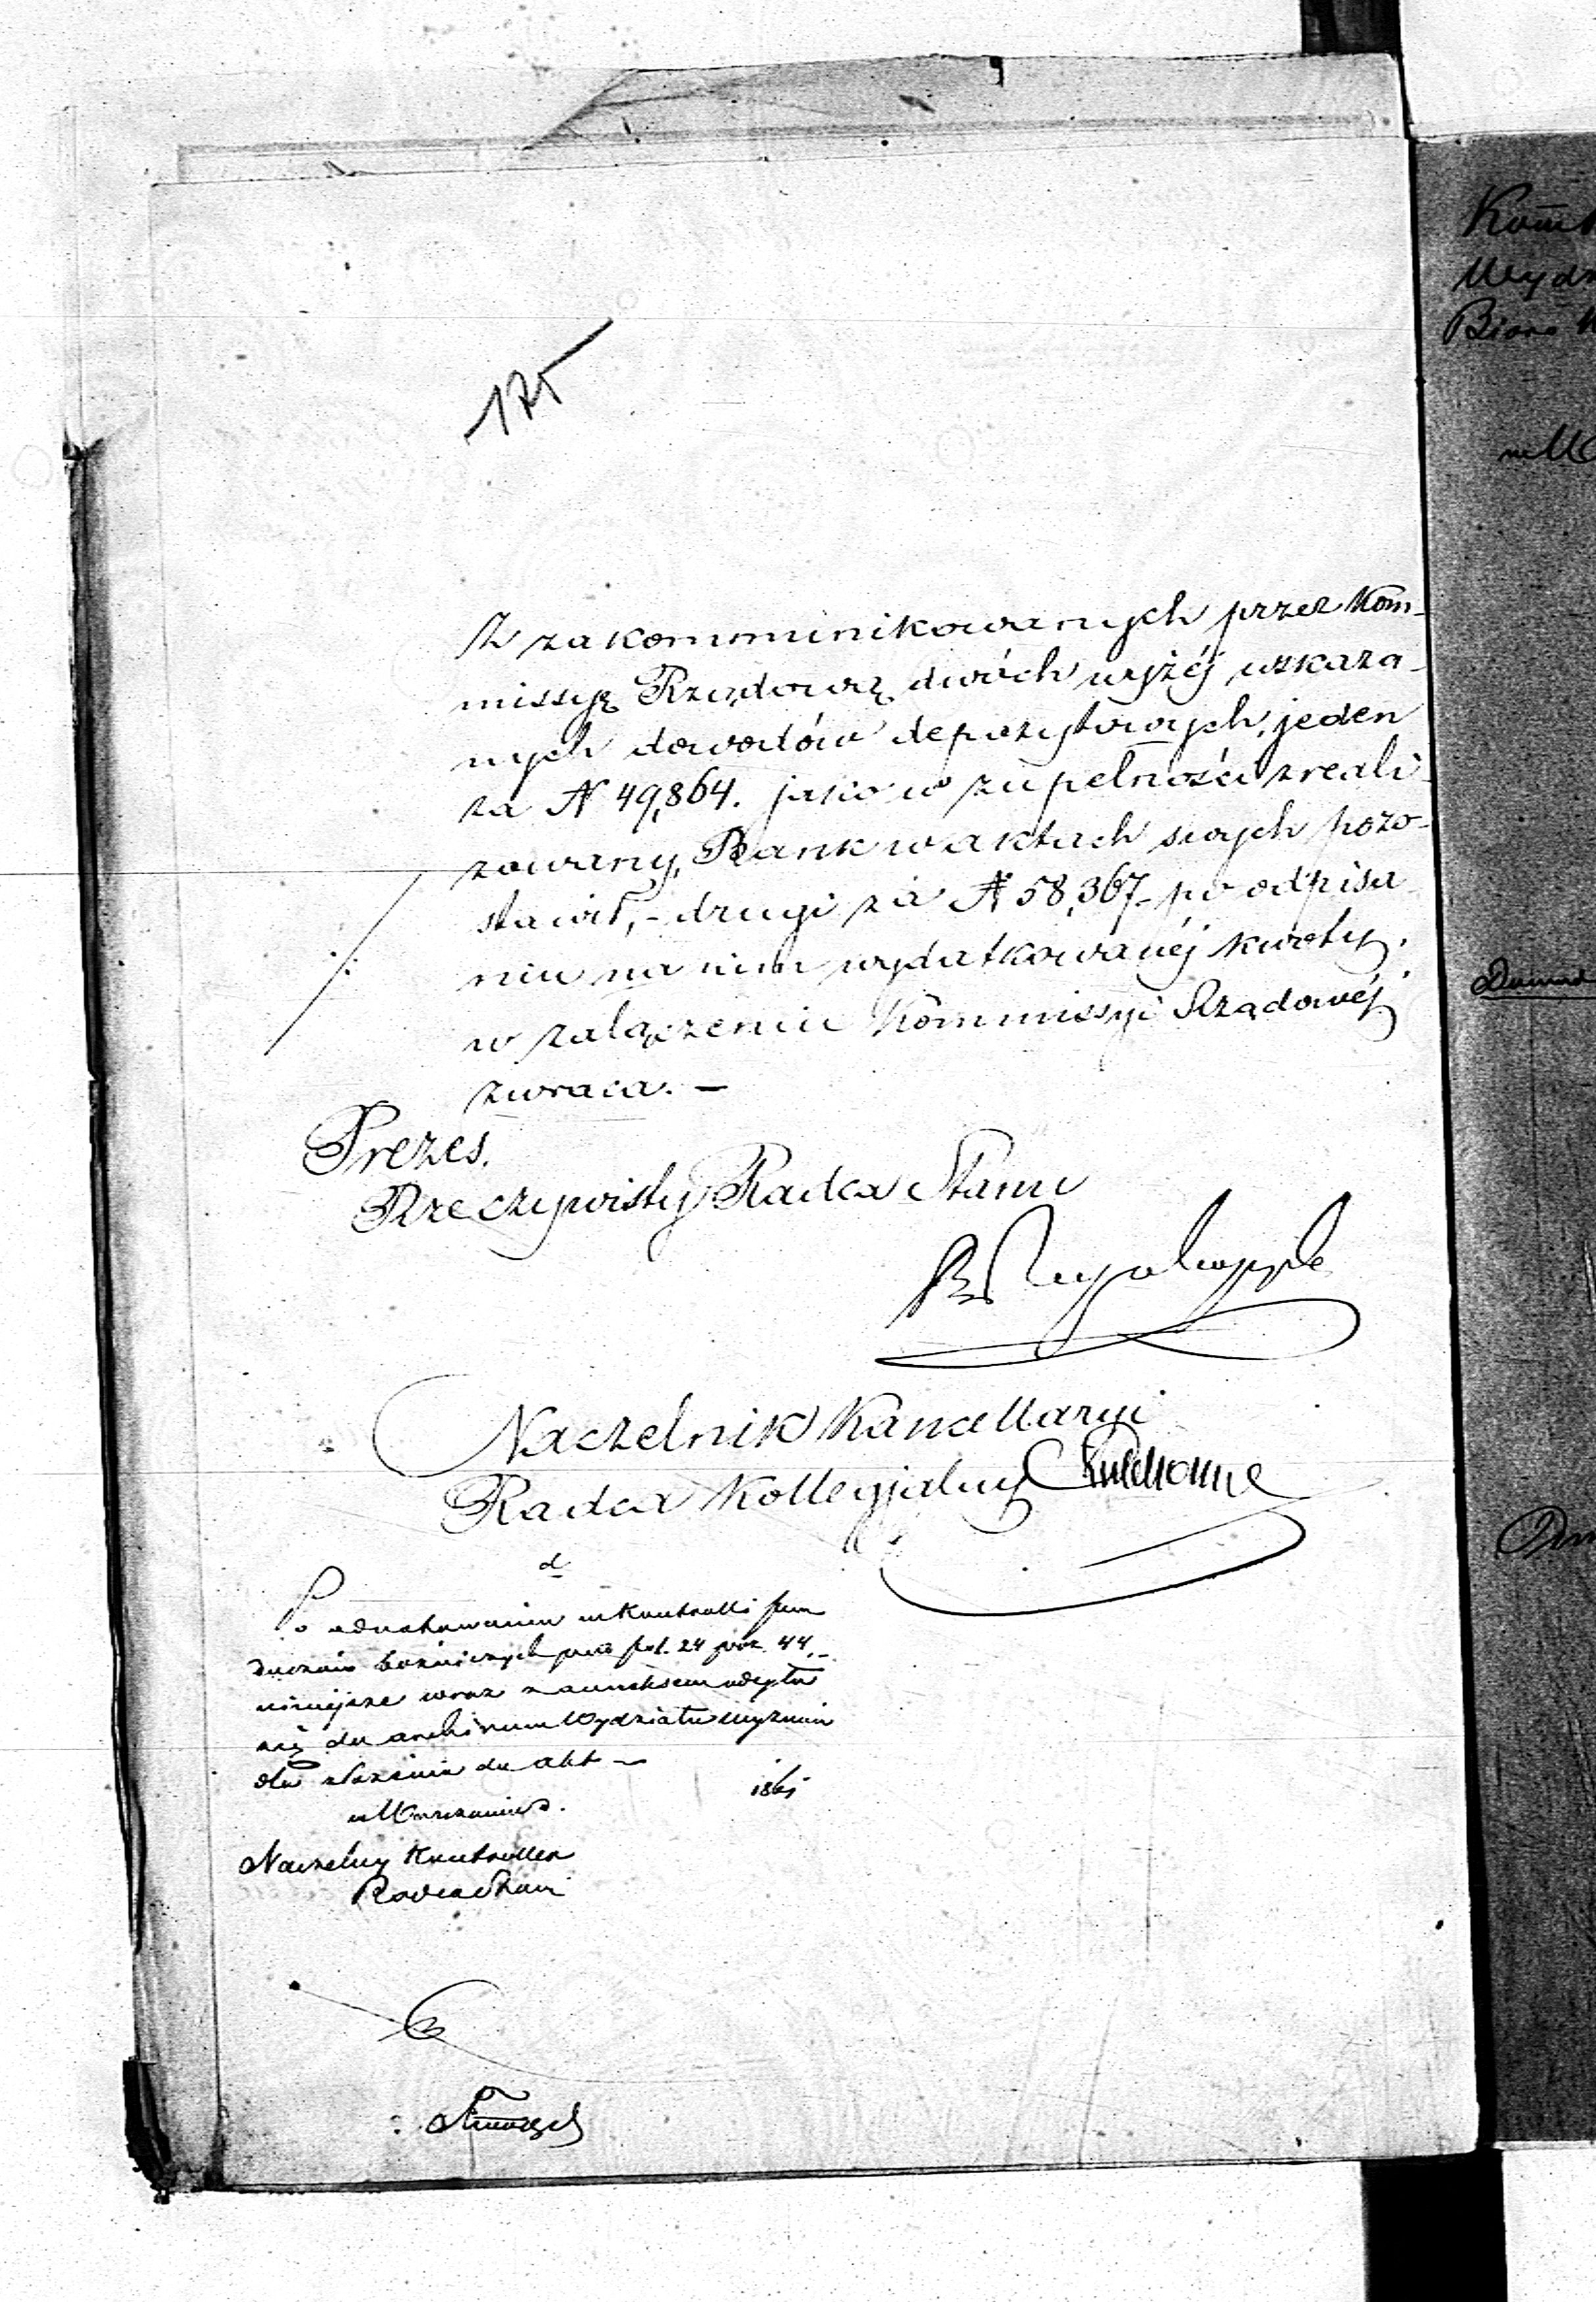 175
Z zakommunikowanych przez Kom-
missyę Rządową dwóch wyżéj wskaza-
nych dowodów depozytowych, jeden
za N 49,864. jako w zupełności zreali-
zowany, Bank w aktach swych pozo-
stawił, - drugi za N 58,367 - po odpisa-
niu na nim wydatkowanéj kwoty,
w załączeniu Kommissyi Rządowéj
zwraca. -
Prezes.
Rzeczywisty Radca Stanu
Naczelnik Kancellaryi
Radca Kollegjalny
d
Po odnotowaniu w Kontrolli fun
duszów bożniczych pod fol. 24 poz. 44,
niniejsze wraz z annexem odsyła
się do archiwum Wydziału Wyznań
dla złożenia do akt -
w Warszawie d. 1861
Naczelny Kontroller
Radca Stanu